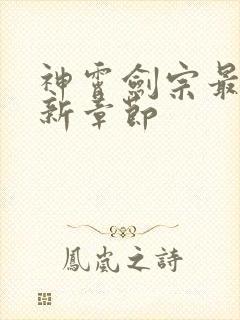 神霄劍宗最
新章節
鳳嵐之詩